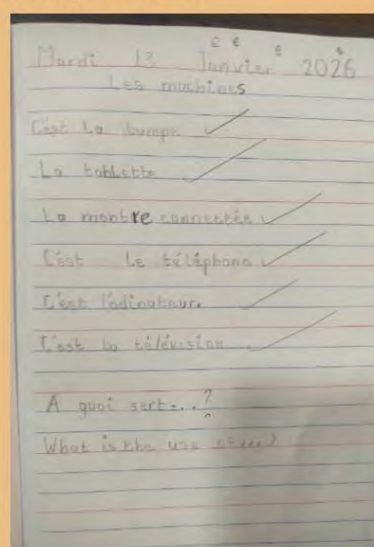 Mardi 13 Janvier 2026
Les machines
C'est La lampe
La tablette
La montre connectée
C'est le téléphone
C'est l'odinateur.
C'est la télévision
A quoi sert...?
What is the use of...?